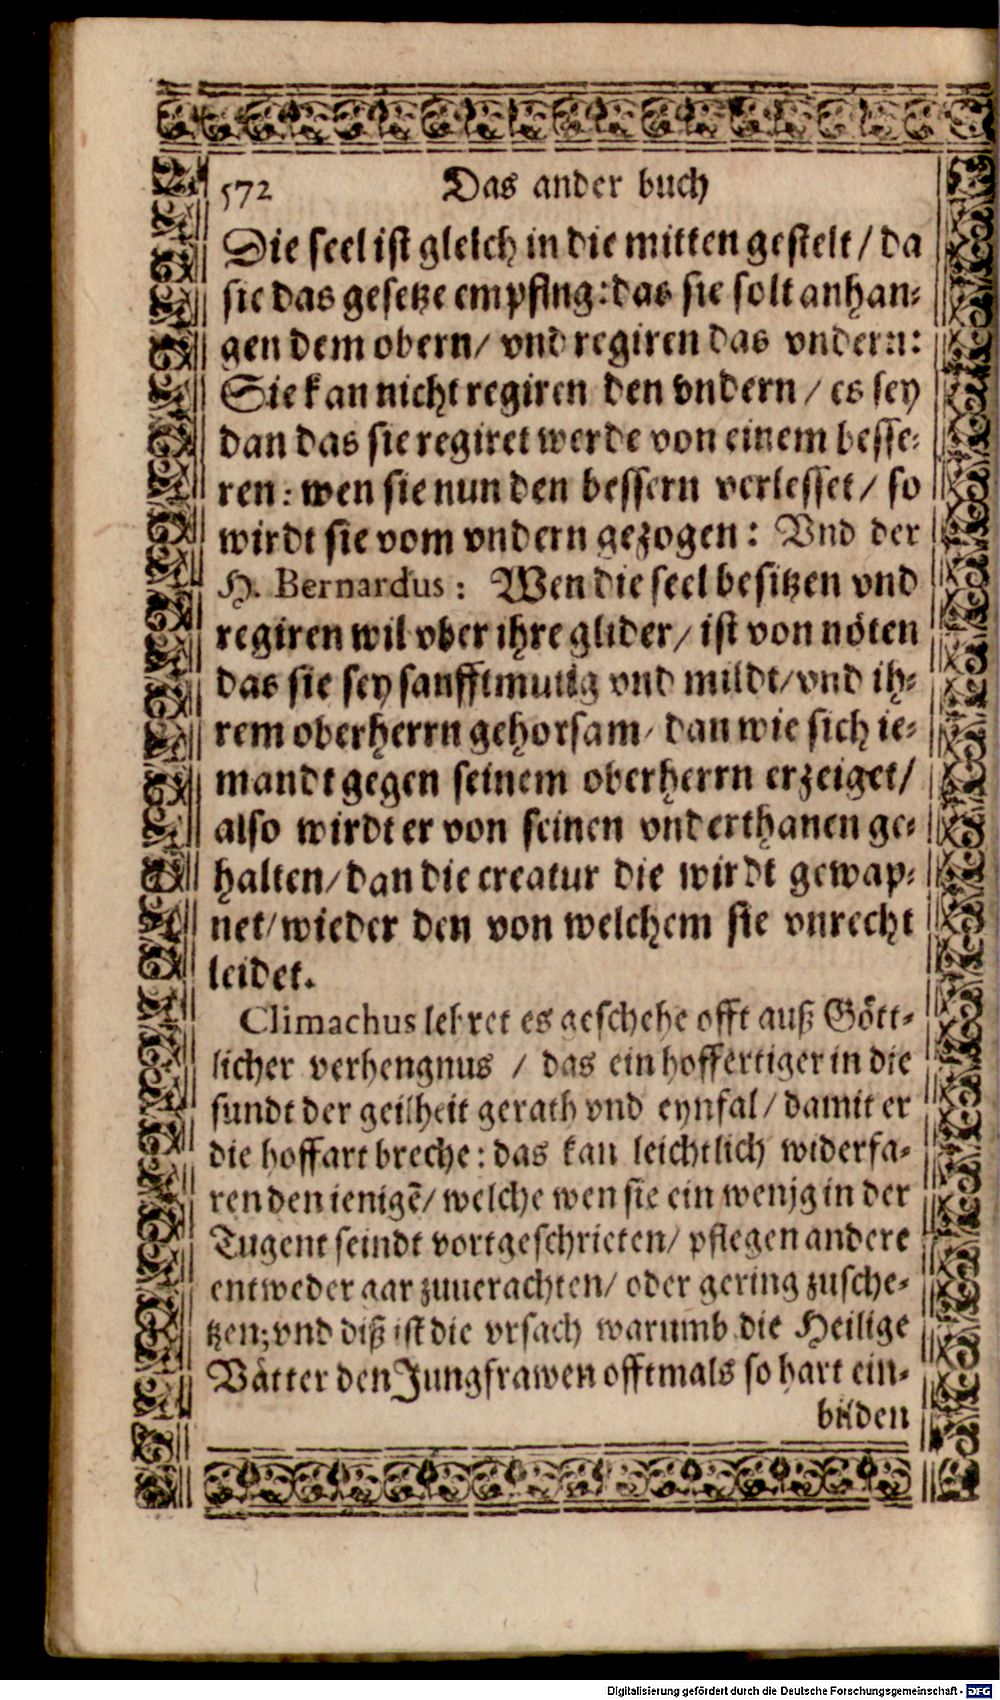 572 Das ander buch
Die seel ist gleich in die mitten gestelt / da
sie das gesetze empfing: das sie solt anhan⸗
gen dem obern / vnd regiren das vndern:
Sie kan nicht regiren den vndern / es sey
dan das sie regiret werde von einem besse⸗
ren: wen sie nun den bessern verlesset / so
wirdt sie vom vndern gezogen: Vnd der
H. Bernardus: Wen die seel besitzen vnd
regiren wil vber ihre glider / ist von nöten
das sie sey sanfftmutig vnd mildt / vnd ih⸗
rem oberherrn gehorsam / dan wie sich ie⸗
mandt gegen seinem oberherrn erzeiget /
also wirdt er von seinen vnderthanen ge⸗
halten / dan die creatur die wirdt gewap⸗
net / wieder den von welchem sie vnrecht
leidet.
Climachus lehret es geschehe offt auß Gött⸗
licher verhengnus / das ein hoffertiger in die
sundt der geilheit gerath vnd eynfal / damit er
die hoffart breche: das kan leichtlich widerfa⸗
ren den ienigē / welche wen sie ein wenjg in der
Tugent seindt vortgeschrieten / pflegen andere
entweder gar zuuerachten / oder gering zusche⸗
tzen; vnd diß ist die vrsach warumb die Heilige
Vätter den Jungfrawen offtmals so hart ein⸗
bilden
Digitalisierung gefördert durch die Deutsche Forschungsgemeinschaft - DFG